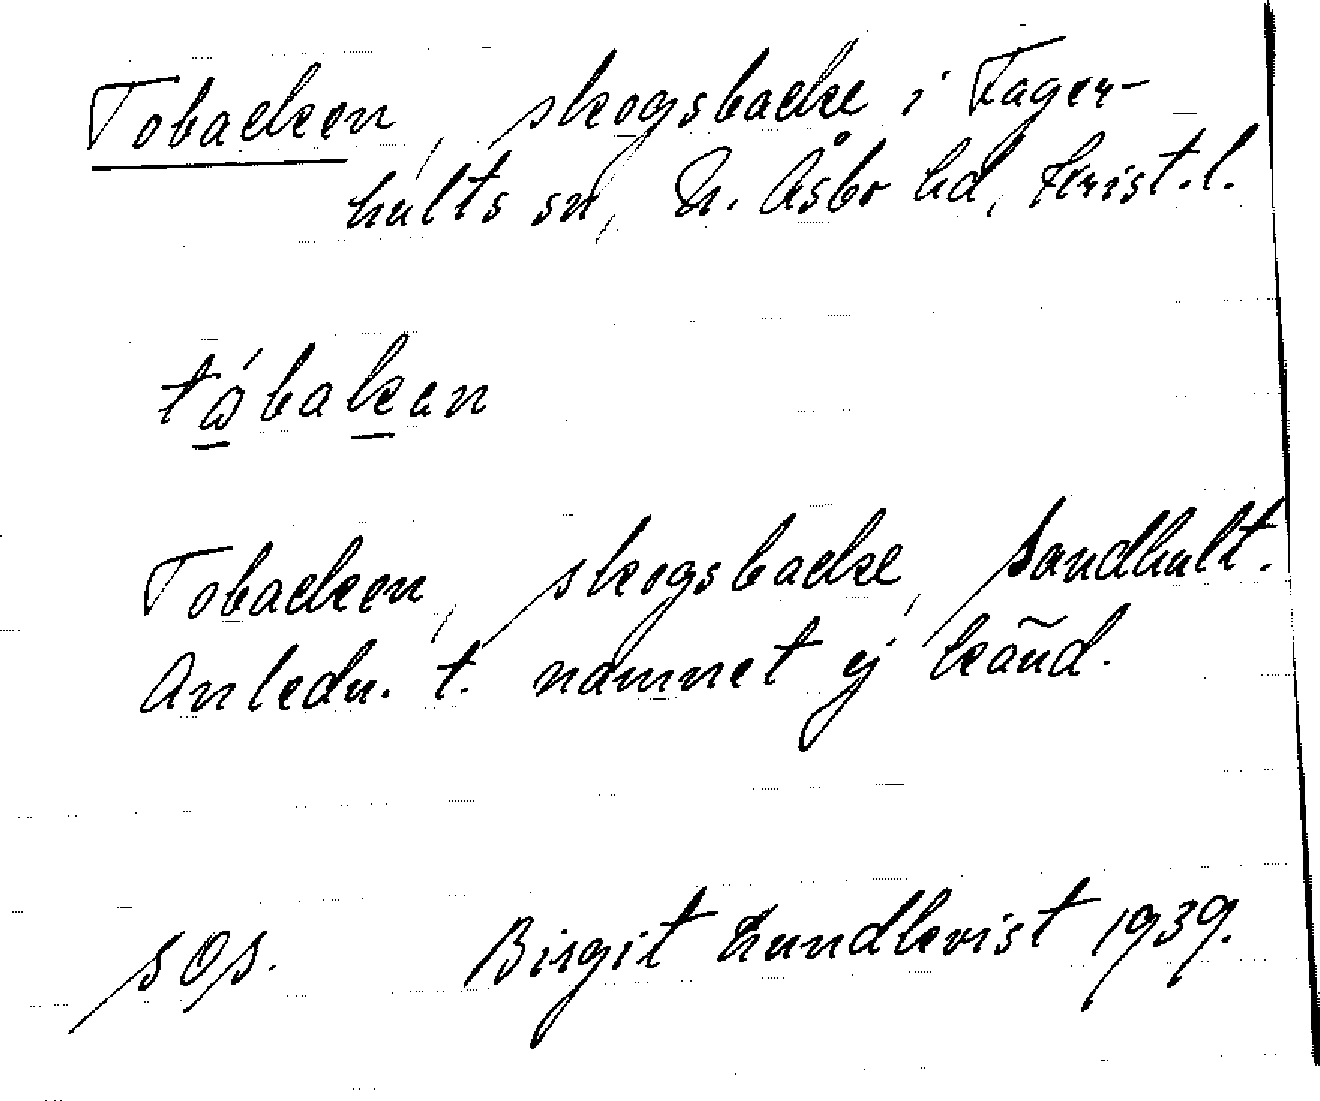 Tobacken, skogsbacke i Fager-
hults sn, N. Åsbo hd, Krist. l.
tǻbakan
Tobacken, skogsbacke, Sandhult.
Anledn. t. namnet ej kän̄d.
s Os. Birgit Lundkvist 1939.